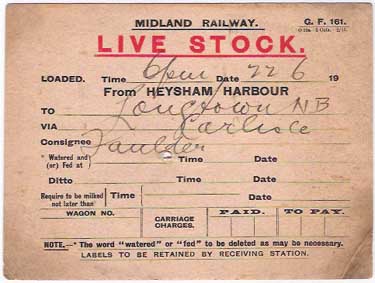 MIDLAND RAILWAY. G. F. 161.
LIVE STOCK.
LOADED. Time 6pm Date 22 6 19
From HEYSHAM HARBOUR
TO Longtown NB
VIA Carlisle
Consignee Faulder
* Watered and (or) Fed at } Time Date
Ditto Time Date
Require to be milked not later than } Time Date
WAGON NO. CARRIAGE CHARGES. PAID. TO PAY.
NOTE.—* The word "watered" or "fed" to be deleted as may be necessary.
LABELS TO BE RETAINED BY RECEIVING STATION.